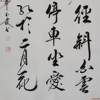 徑斜白雲
停車坐愛
紅於二月花